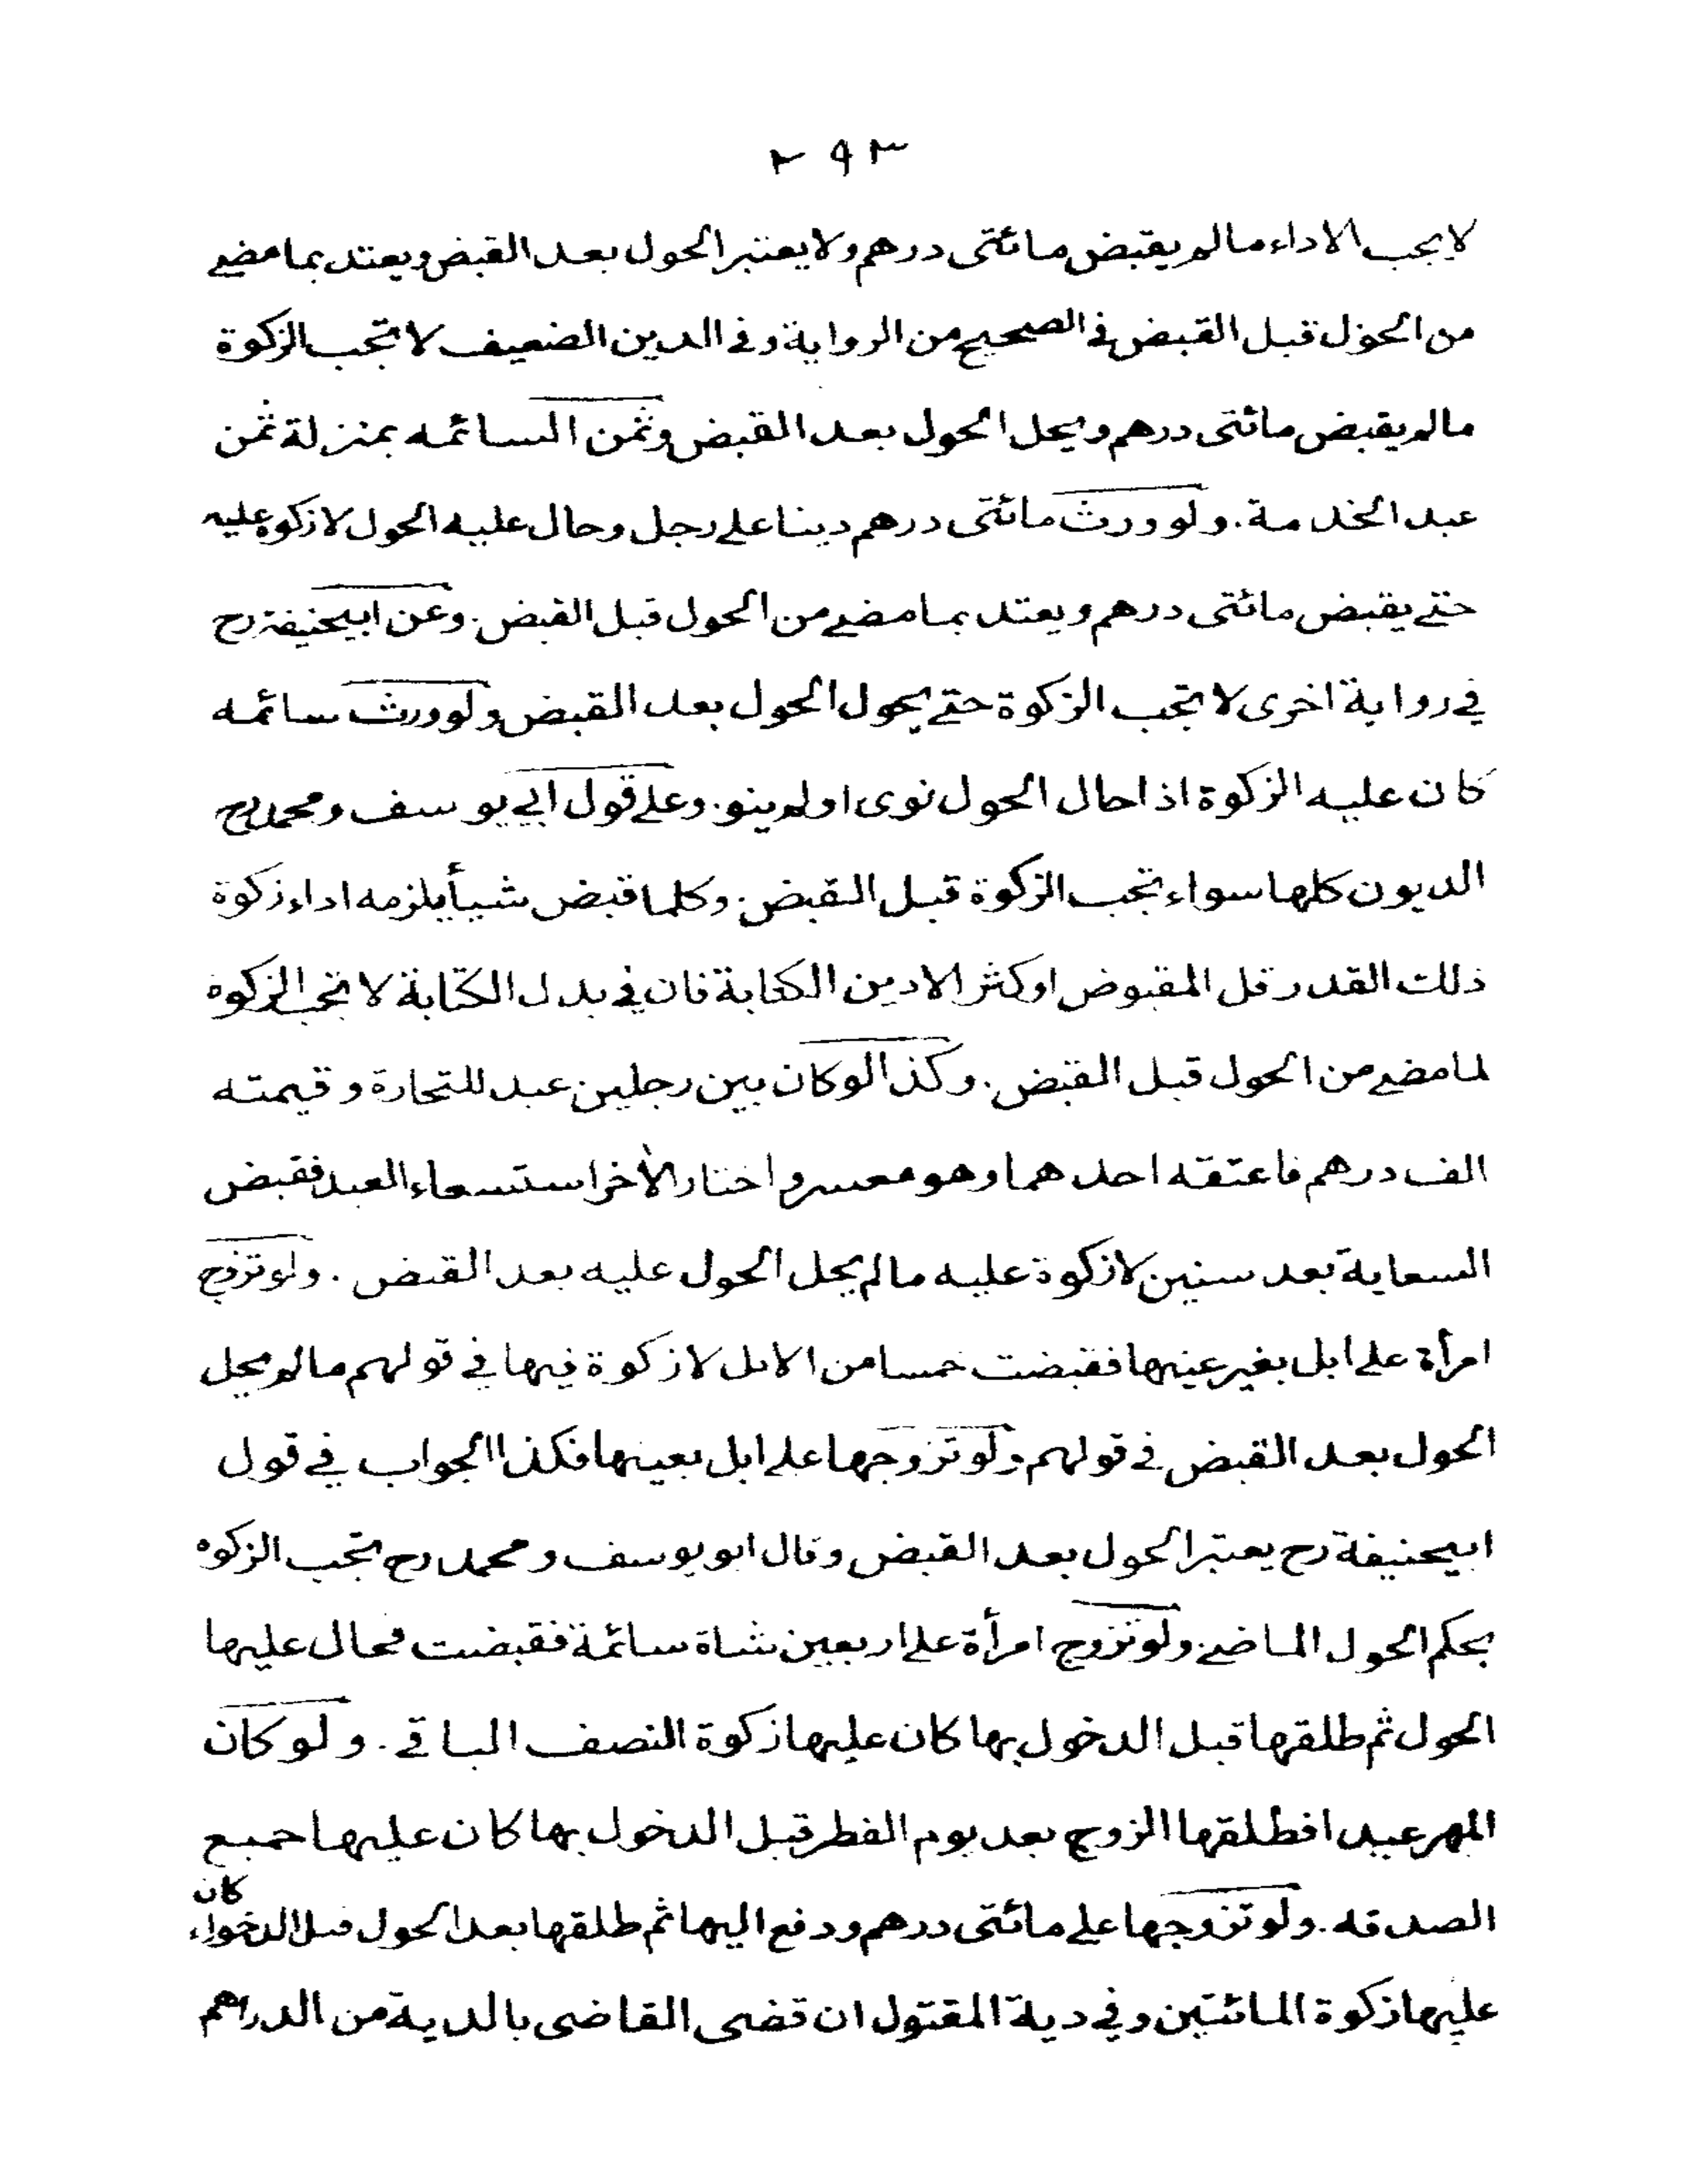 ٢٩٣
لا يجب الاداء مالم يقبض مائتى درهم ولا يعتبر الحول بعد القبض ويعتد بما مضى
من الحول قبل القبض فى الصحيح من الرواية وفى الدين الضعيف لا تجب الزكوة
مالم يقبض مائتى درهم ويحل الحول بعد القبض وثمن السائمه بمنزلة ثمن
عبد الخدمة. ولو ورث مائتى درهم دينا على رجل وحال عليه الحول لا زكوة عليه
حتى يقبض مائتى درهم ويعتد بما مضى من الحول قبل القبض. وعن ابيحنيفة رح
فى رواية اخرى لا تجب الزكوة حتى يحول الحول بعد القبض ولو ورث سائمه
كان عليه الزكوة اذا حال الحول نوى او لم ينو. وعلى قول ابي يوسف ومحمد رح
الديون كلها سواء تجب الزكوة قبل القبض. وكلما قبض شيأ يلزمه اداء زكوة
ذلك القدر قل المقبوض او كثر الا دين الكتابة فان فى بدل الكتابة لا تجب الزكوه
لما مضى من الحول قبل القبض. وكذا لو كان بين رجلين عبد للتجارة وقيمته
الف درهم فاعتقه احدهما وهو معسر واختار الأخر استسعاء العبد فقبض
السعاية بعد سنين لا زكوة عليه مالم يحل الحول عليه بعد القبض. ولو تزوج
امرأة على ابل بغير عينها فقبضت خمسا من الابل لا زكوة فيها فى قولهم مالم يحل
الحول بعد القبض فى قولهم ولو تزوجها على ابل بعينها فكذا الجواب فى قول
ابيحنيفة رح يعتبر الحول بعد القبض وقال ابو يوسف ومحمد رح تجب الزكوه
بحكم الحول الماضى ولو تزوج امرأة على اربعين شاة سائمة فقبضت فحال عليها
الحول ثم طلقها قبل الدخول بها كان عليها زكوة النصف الباقى. ولو كان
المهر عبدا فطلقها الزوج بعد يوم الفطر قبل الدخول بها كان عليها جميع
الصدقه. ولو تزوجها على مائتى درهم ودفع اليها ثم طلقها بعد الحول قبل الدخول كان
عليها زكوة المائتين وفى دية المقتول ان قضى القاضى بالدية من الدراهم